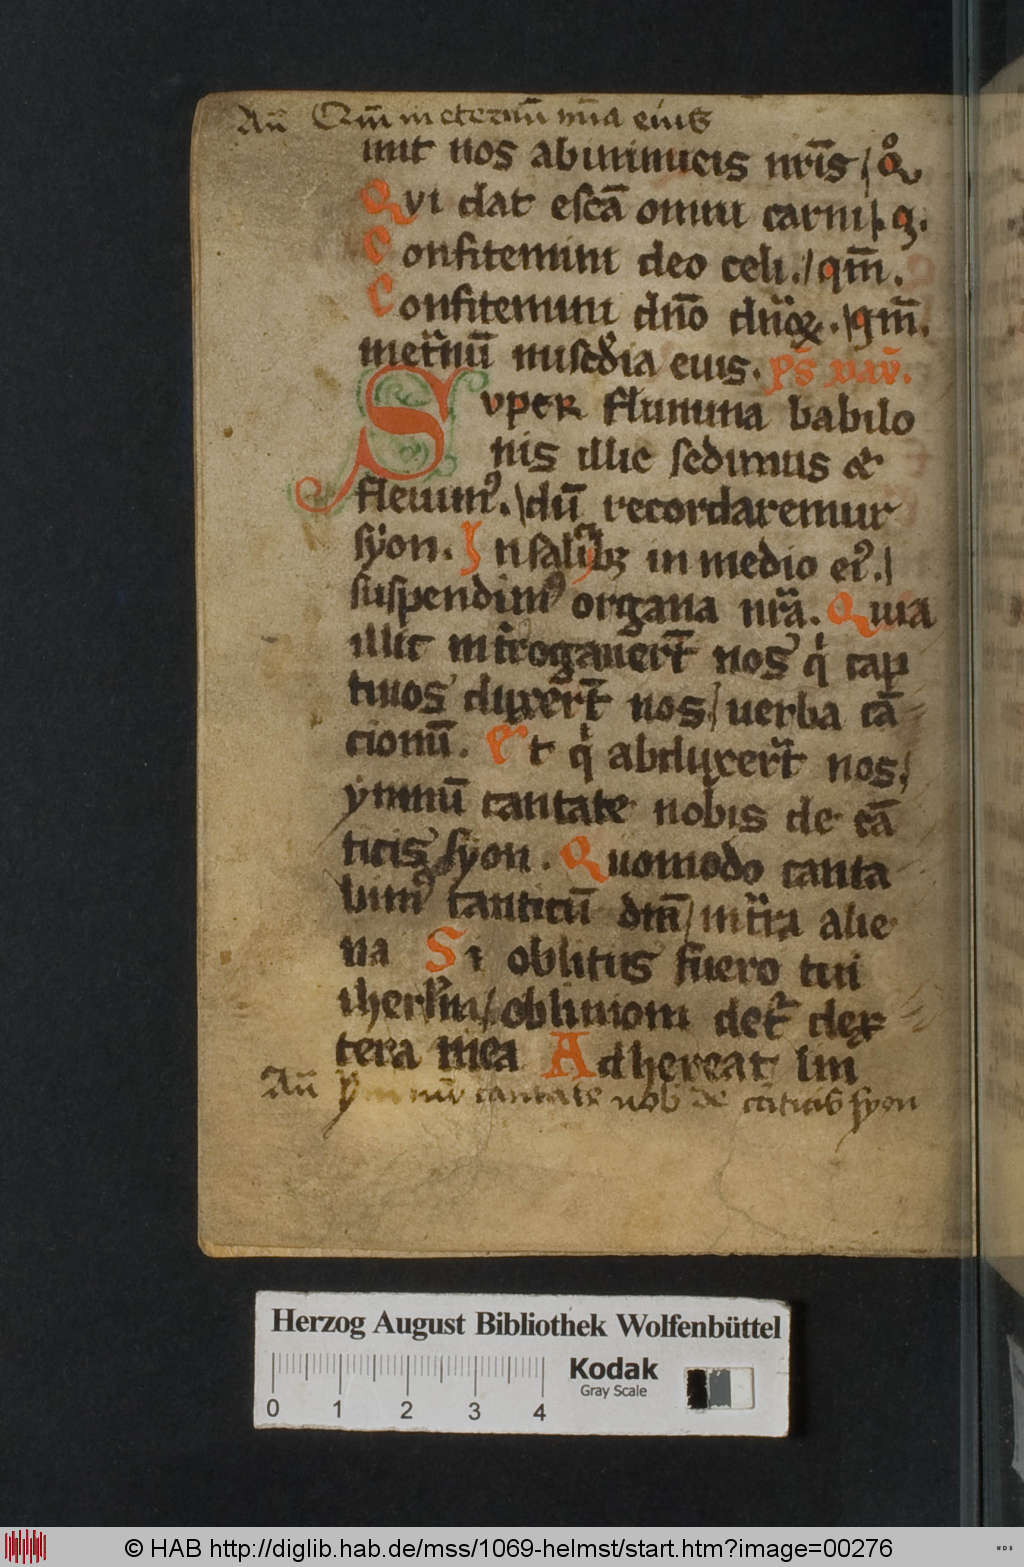 An̄ Qm̄ in eternū mīa eius
mit nos ab inimicis nr̄is / qͦ
Qvi dat escā omni carni . q.
Confitemini deo celi . / qm̄ .
Confitemini dn̄o dn̄oꝝ . / qm̄ .
in et̄nū misc̄dia eius . ps̄ dav̄ .
Svper flumina babilo
nis illic sedimus et
fleuimꝰ . / dū recordaremur
syon . In salicibꝫ in medio eiꝰ . /
suspendimꝰ organa nr̄a . Quia
illic int̄rogauer̄t nos qͥ cap
tiuos duxer̄t nos / uerba cā
cionū . Et qͥ abduxer̄t nos /
ymnū cantate nobis de cā
ticis syon . Quomodo canta
bimꝰ canticū dn̄i / in t̄ra alie
na Si oblitus fuero tui
iherl̄m / obliuioni det̄ dex
tera mea Adhereat lin
An̄ ymnū cantate nob̄ de cāticis syon
Herzog August Bibliothek Wolfenbüttel
Kodak
Gray Scale
0 1 2 3 4
© HAB http://diglib.hab.de/mss/1069-helmst/start.htm?image=00276